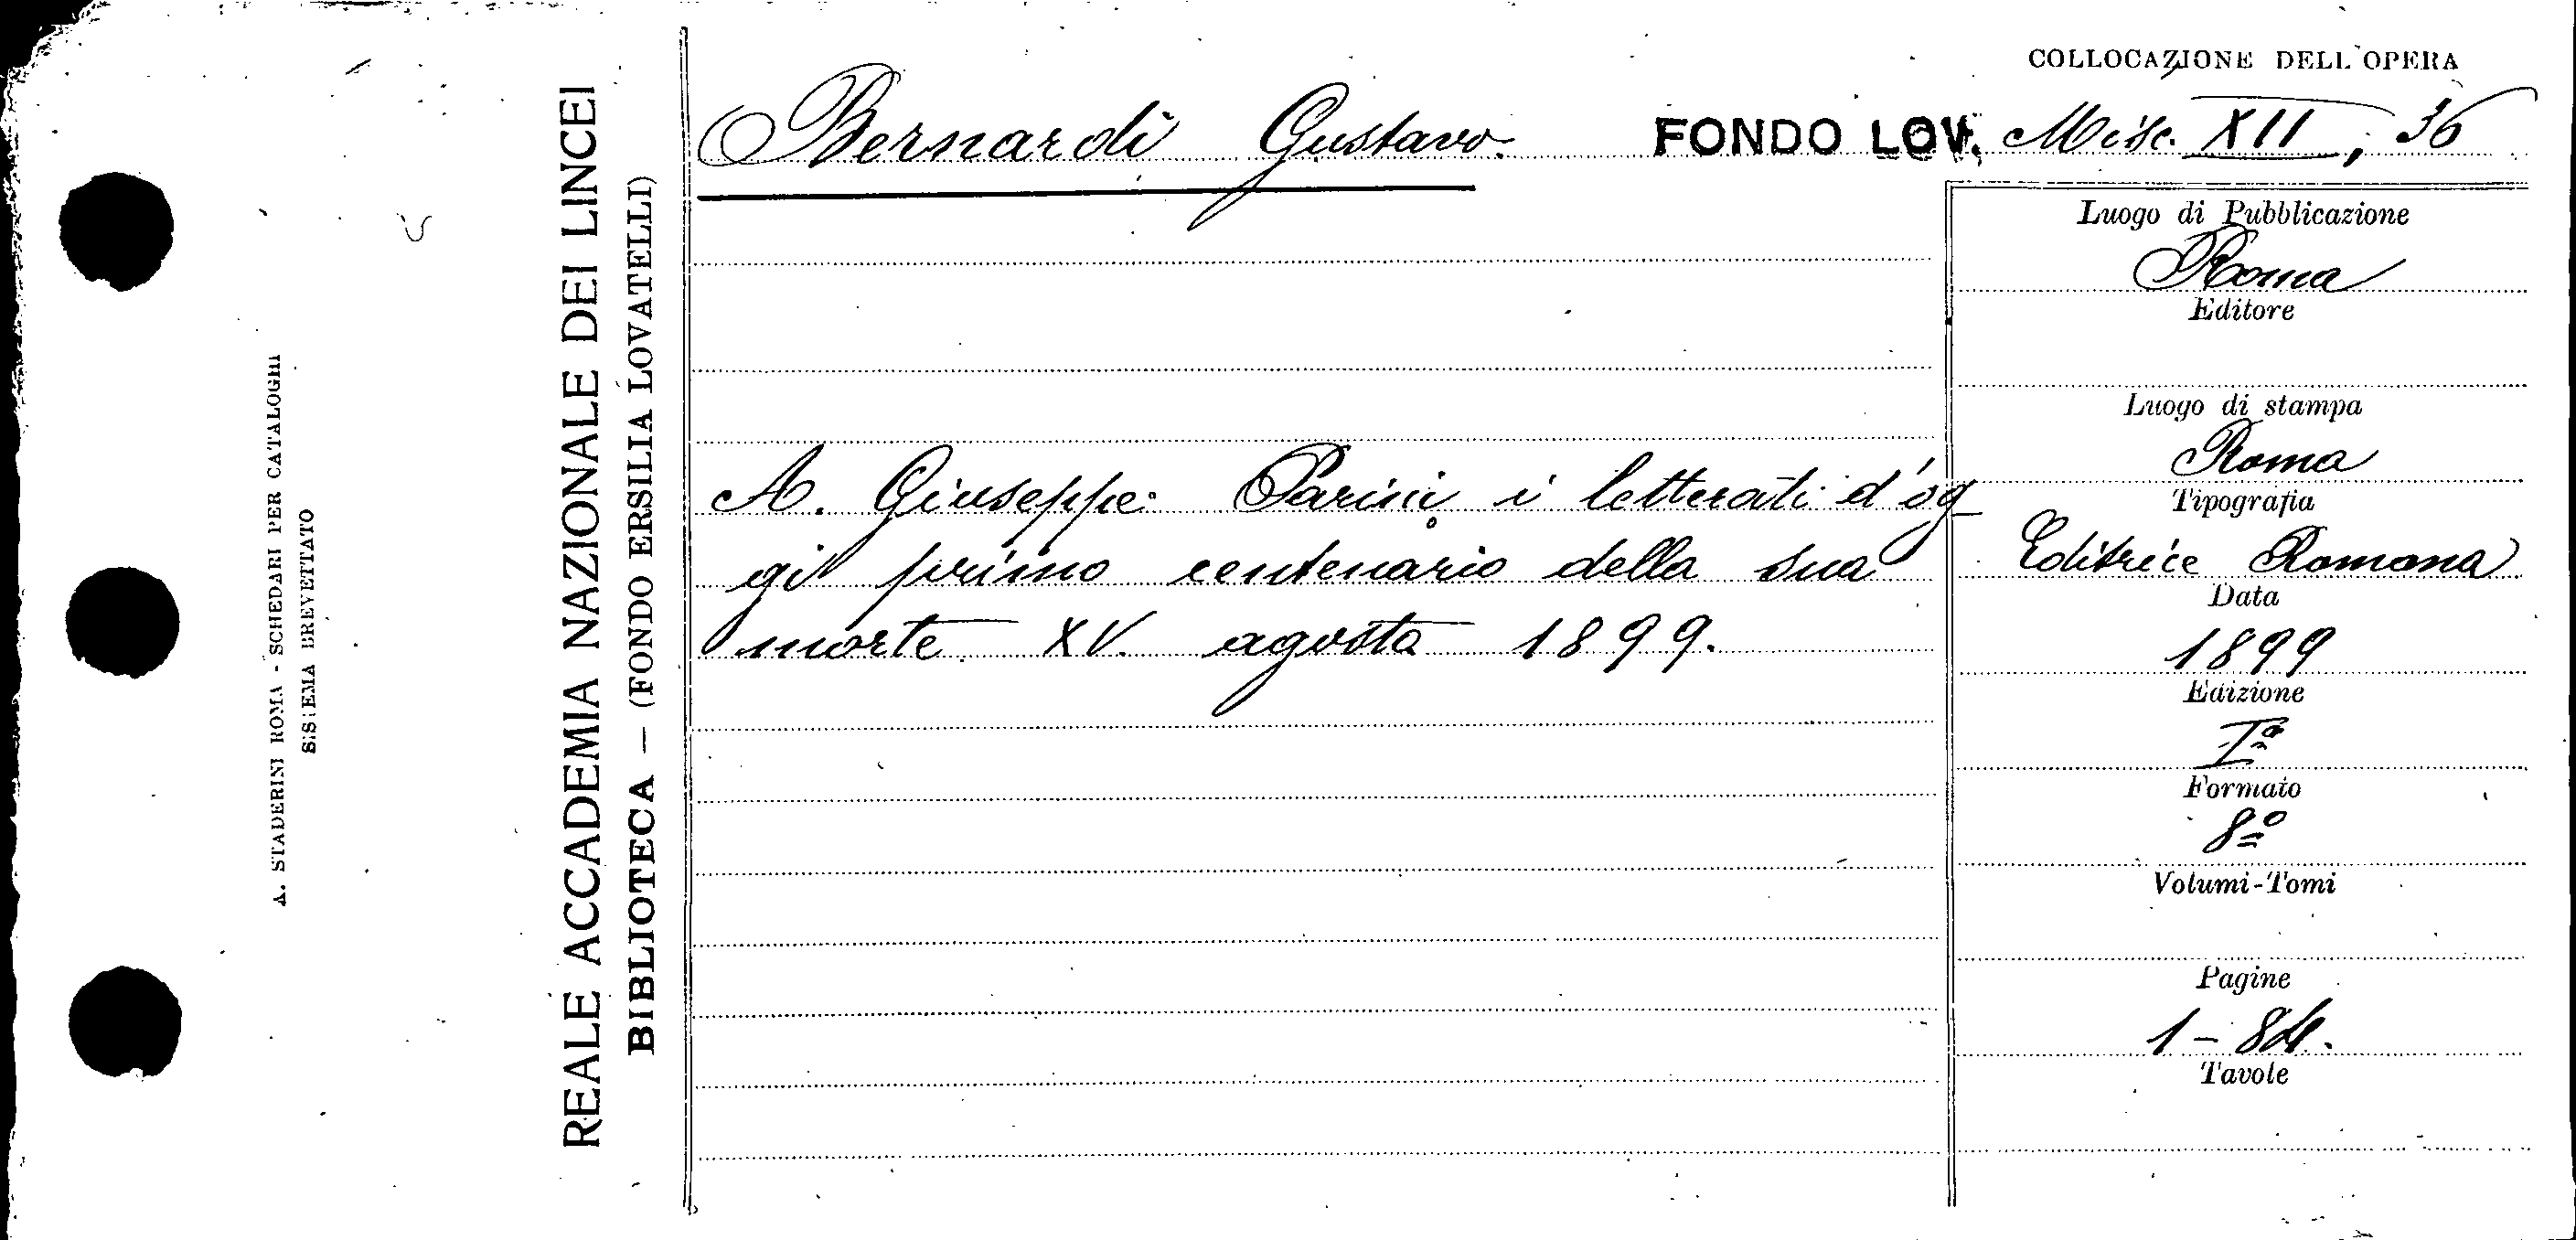 A. STADERINI ROMA - SCHEDARI PER CATALOGHI
SISTEMA BREVETTATO
REALE ACCADEMIA NAZIONALE DEI LINCEI
BIBLIOTECA — (FONDO ERSILIA LOVATELLI)
COLLOCAZIONE DELL'OPERA
Bernardi Gustavo. FONDO LOV. Misc. XII, 36
A. Giuseppe Parini i letterati d'og
gi primo centenario della sua
morte XV. agosto 1899.
Luogo di Pubblicazione
Roma
Editore
Luogo di stampa
Roma
Tipografia
Editrice Romana
Data
1899
Edizione
Iª
Formato
8º
Volumi-Tomi
Pagine
1-84.
Tavole